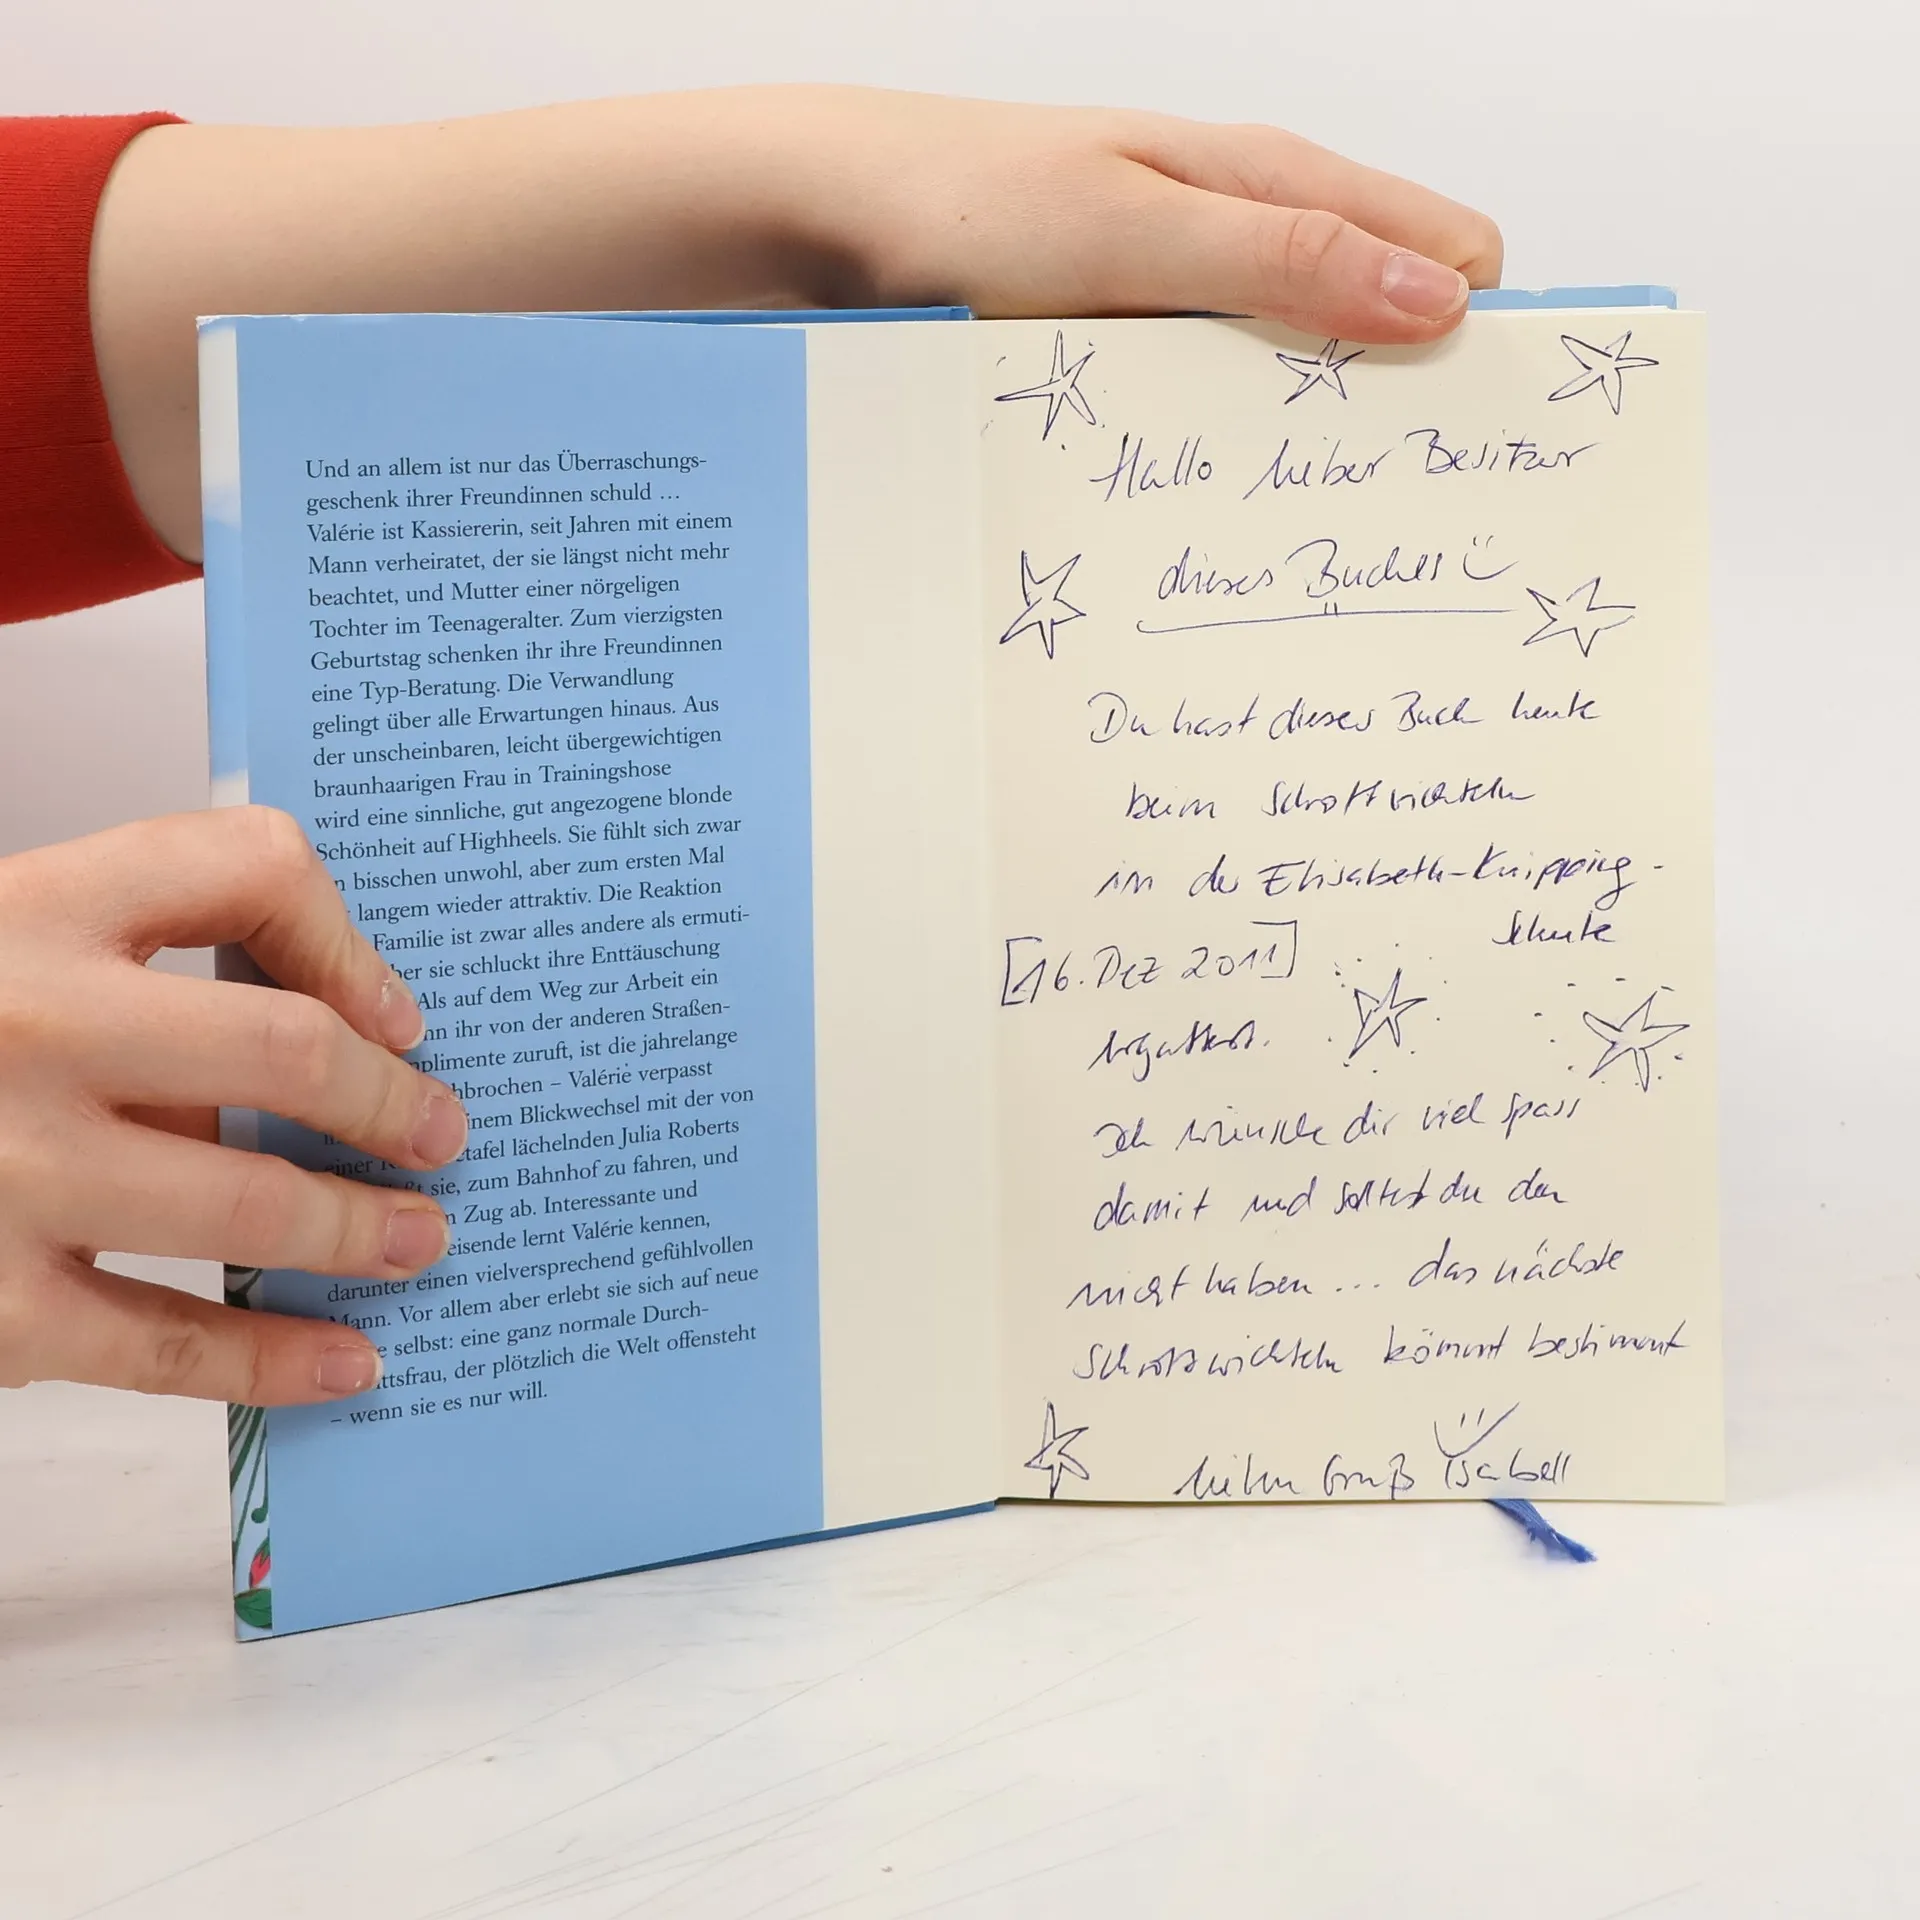 Und an allem ist nur das Überraschungs-
geschenk ihrer Freundinnen schuld …
Valérie ist Kassiererin, seit Jahren mit einem
Mann verheiratet, der sie längst nicht mehr
beachtet, und Mutter einer nörgeligen
Tochter im Teenageralter. Zum vierzigsten
Geburtstag schenken ihr ihre Freundinnen
eine Typ-Beratung. Die Verwandlung
gelingt über alle Erwartungen hinaus. Aus
der unscheinbaren, leicht übergewichtigen
braunhaarigen Frau in Trainingshose
wird eine sinnliche, gut angezogene blonde
Schönheit auf Highheels. Sie fühlt sich zwar
n bisschen unwohl, aber zum ersten Mal
langem wieder attraktiv. Die Reaktion
Familie ist zwar alles andere als ermuti-
ber sie schluckt ihre Enttäuschung
Als auf dem Weg zur Arbeit ein
nn ihr von der anderen Straßen-
plimente zuruft, ist die jahrelange
hbrochen – Valérie verpasst
inem Blickwechsel mit der von
einer etafel lächelnden Julia Roberts
sie, zum Bahnhof zu fahren, und
n Zug ab. Interessante und
eisende lernt Valérie kennen,
darunter einen vielversprechend gefühlvollen
Mann. Vor allem aber erlebt sie sich auf neue
e selbst: eine ganz normale Durch-
ittsfrau, der plötzlich die Welt offensteht
– wenn sie es nur will.
Hallo lieber Besitzer
dieses Buches
Du hast dieses Buch heute
beim Schrottwichteln
in der Elisabeth-Knipping-
Schule
[16. Dez 2011]
ergattert.
Ich wünsche dir viel spass
damit und solltest du den
nicht haben ... das nächste
Schrottwichteln kommt bestimmt
lieben Gruß Isabell